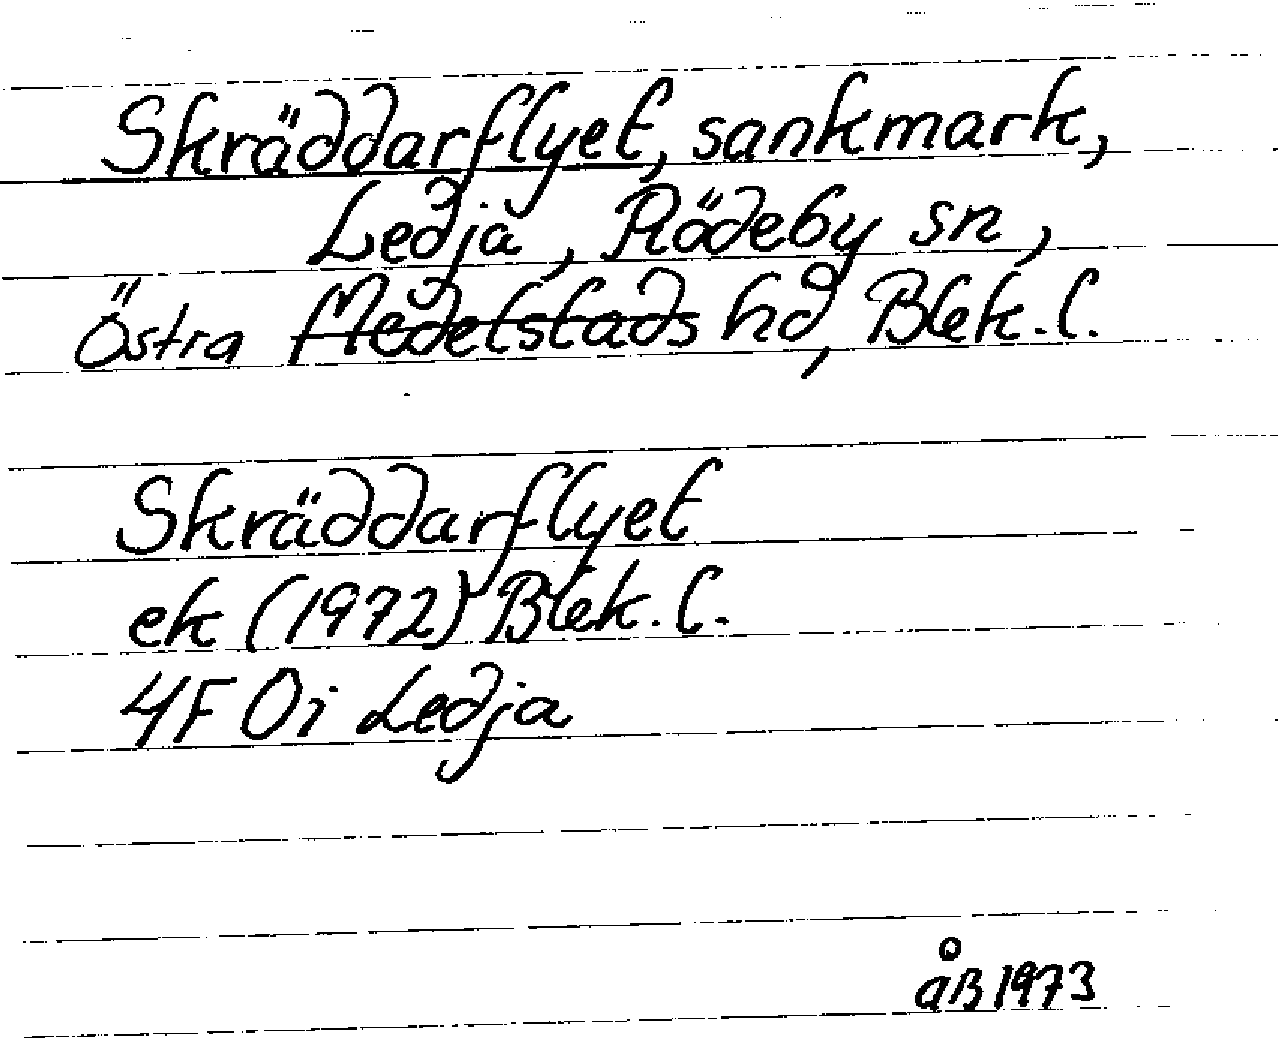 Skräddarflyet, sankmark,
Ledja, Rödeby sn,
Östra Medelstads hd, Blek. l.
Skräddarflyet
ek (1972) Blek. l.
4F 0i Ledja
åB 1973